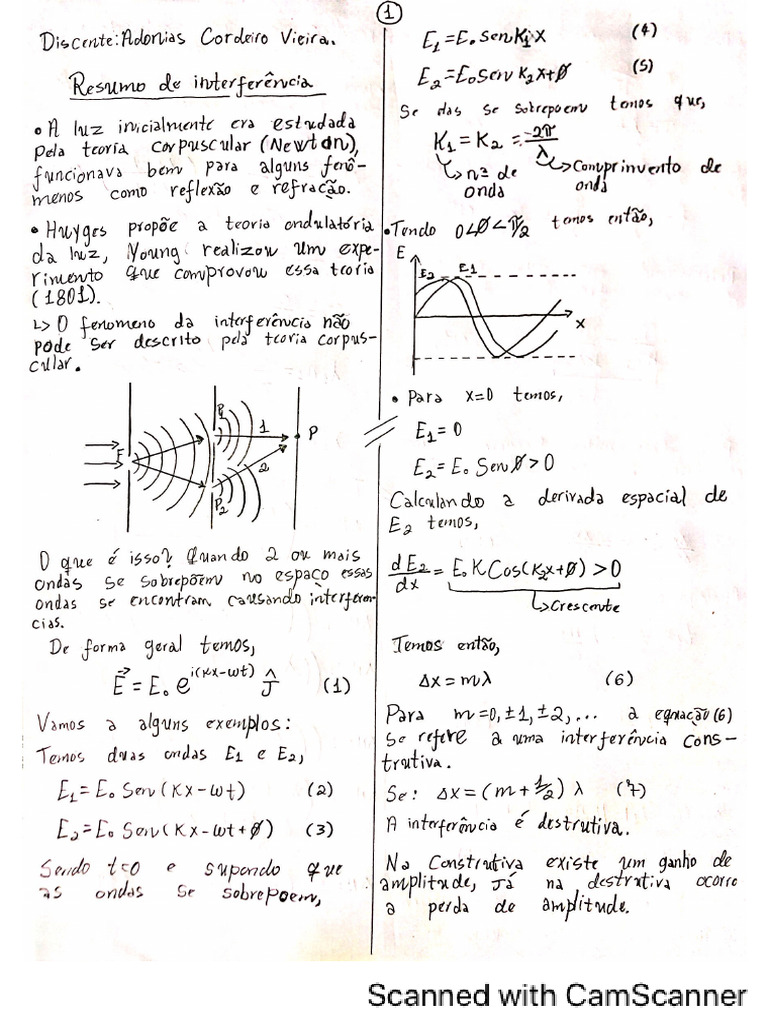 1
Discente: Adonias Cordeiro Vieira.
Resumo de interferência
• A luz inicialmente era estudada
pela teoria corpuscular (Newton),
funcionava bem para alguns fenô-
menos como reflexão e refração.
• Huyges propõe a teoria ondulatória
da luz, Young realizou um expe-
rimento que comprovou essa teoria
(1801).
↳ O fenomeno da interferência não
pode ser descrito pela teoria corpus-
cular.
F
P1
P2
1
2
P
O que é isso? Quando 2 ou mais
ondas se sobrepõem no espaço essas
ondas se encontram causando interferên-
cias.
De forma geral temos,
E⃗ = E₀ e^{i(kx-wt)} ĵ (1)
Vamos a alguns exemplos:
Temos duas ondas E1 e E2,
E₁ = E₀ Sen(Kx-wt) (2)
E₂ = E₀ Sen(Kx-wt+ø) (3)
Sendo t=0 e supondo que
as ondas se sobrepoem,
E₁ = E₀ sen K₁x (4)
E₂ = E₀ Sen K₂x+ø (5)
Se das se sobrepoem temos que,
K₁ = K₂ = -2π/λ
↳ nº de onda ↳ Comprinvento de onda
• Tendo 0<ø<π/2 temos então,
E
E2 E1
x
• Para x=0 temos,
E₁ = 0
E₂ = E₀ Sen ø > 0
Calculando a derivada espacial de
E₂ temos,
dE₂/dx = E₀ K Cos(K₂x+ø) > 0
↳ Crescente
Temos então,
Δx = mλ (6)
Para m=0, ±1, ±2, ... a equação (6)
Se refere a uma interferência Cons-
trutiva.
Se: Δx = (m + 1/2) λ (7)
A interferência é destrutiva.
Na Construtiva existe um ganho de
amplitude, Já na destrutiva ocorre
a perda de amplitude.
Scanned with CamScanner